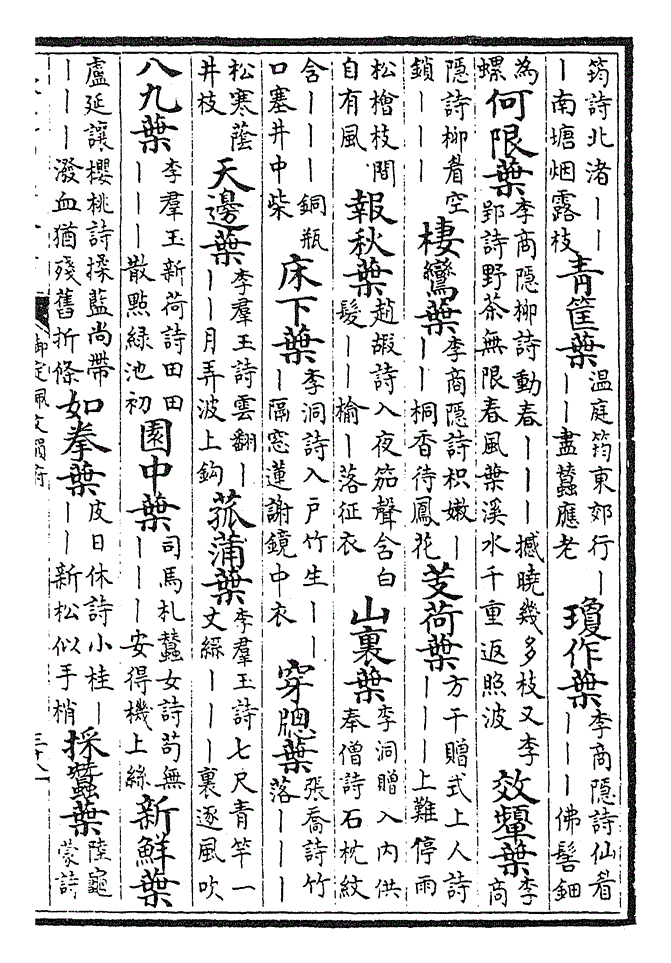 筠詩北渚｜｜
｜南塘烟露枝
青筐葉
溫庭筠東郊行｜
｜｜盡蠶應老
瓊作葉
李商隱詩仙眉
｜｜｜佛髻鈿
為
螺
何限葉
李商隱柳詩動春｜｜｜撼曉幾多枝又李
郢詩野茶無限春風葉溪水千重返照波
效顰葉
李
商
隱詩柳眉空
鎖｜｜｜
棲鸞葉
李商隱詩枳嫩｜
｜｜桐香待鳳花
芰荷葉
方干贈式上人詩
｜｜｜上難停雨
松檜枝間
自有風
報秋葉
趙嘏詩入夜笳聲含白
髮｜｜榆｜落征衣
山裏葉
李洞贈入內供
奉僧詩石枕紋
含｜｜｜銅瓶
口塞井中柴
床下葉
李洞詩入戶竹生｜｜
｜隔窓蓮謝鏡中衣
穿牕葉
張喬詩竹
落｜｜｜
松寒蔭
井枝
天邊葉
李羣玉詩雲翻｜
｜｜月弄波上鈎
菰蒲葉
李羣玉詩七尺青竿一
丈絲｜｜｜裏逐風吹
八九葉
李羣玉新荷詩田田
｜｜｜散點綠池初
園中葉
司馬札蠶女詩苟無
｜｜｜安得機上絲
新鮮葉
盧延讓櫻桃詩揉藍尚帶
｜｜｜潑血猶殘舊折條
如拳葉
皮日休詩小桂｜
｜｜新松似手梢
採蠶葉
陸龜
蒙詩
御定佩文韻府